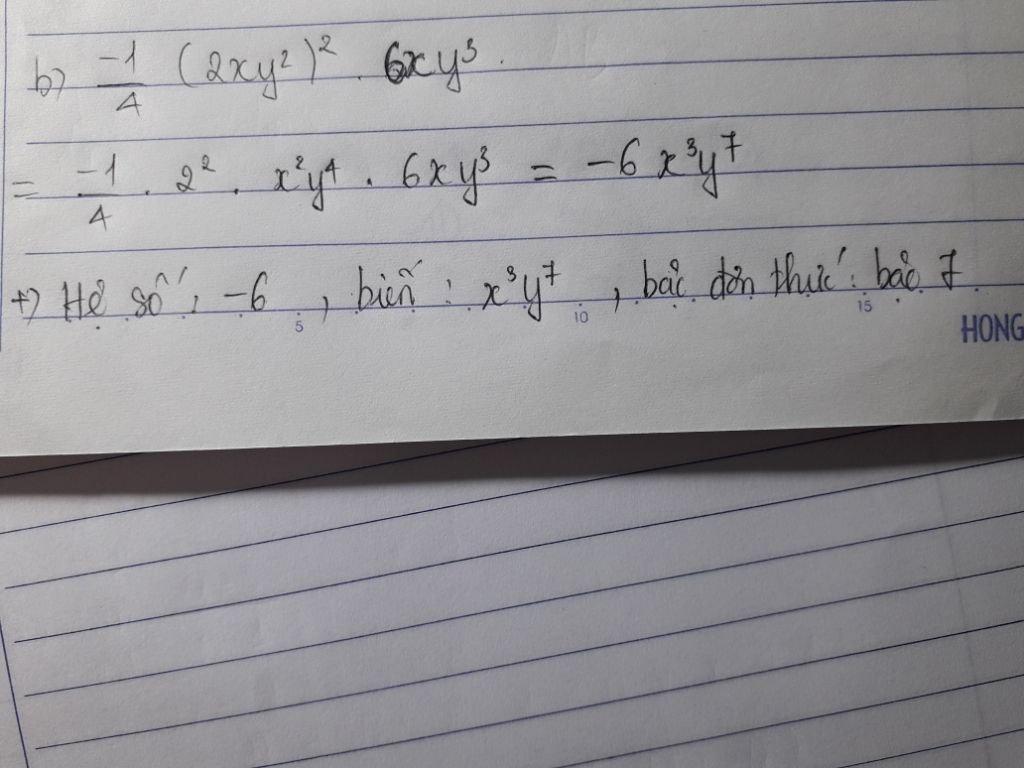 b) -1/4 (2xy²)² . 6xy³.
= -1/4 . 2² . x²y⁴ . 6xy³ = -6x³y⁷
+) Hệ số: -6, biến: x³y⁷, bậc đơn thức: bậc 7
5 10 15
HONG